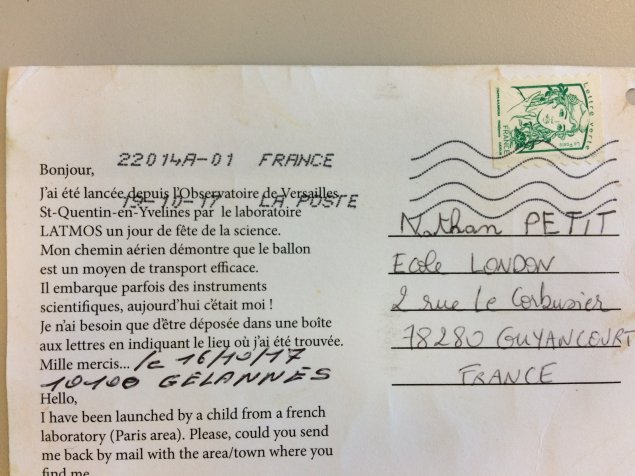 22014A-01 FRANCE
19-10-17 LA POSTE
Lettre verte
La Poste
FRANCE
Bonjour,
J'ai été lancée depuis l'Observatoire de Versailles
St-Quentin-en-Yvelines par le laboratoire
LATMOS un jour de fête de la science.
Mon chemin aérien démontre que le ballon
est un moyen de transport efficace.
Il embarque parfois des instruments
scientifiques, aujourd'hui c'était moi !
Je n'ai besoin que d'être déposée dans une boîte
aux lettres en indiquant le lieu où j'ai été trouvée.
Mille mercis... le 16/10/17
10100 GÉLANNES
Hello,
I have been launched by a child from a french
laboratory (Paris area). Please, could you send
me back by mail with the area/town where you
find me
Nathan PETIT
Ecole LONDON
2 rue le Corbusier
78280 GUYANCOURT
FRANCE